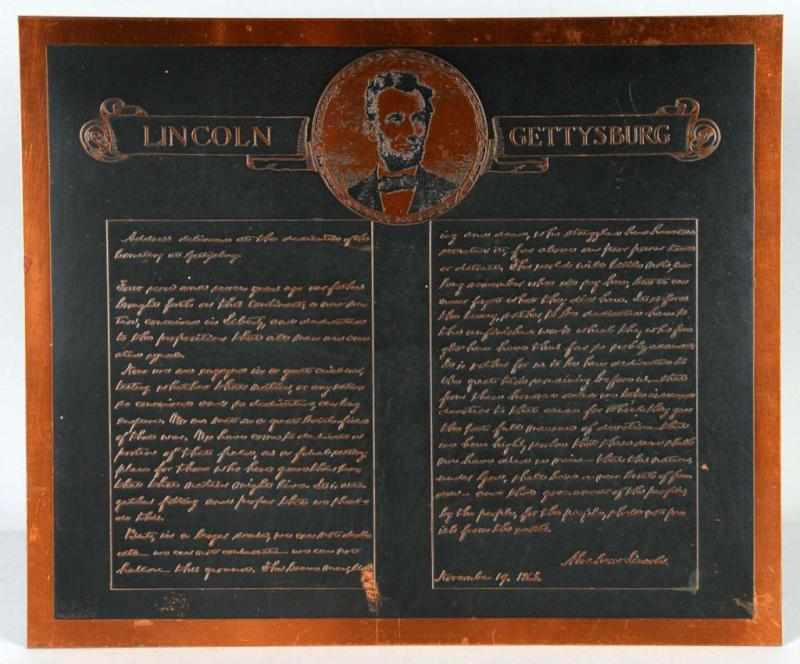 LINCOLN GETTYSBURG
Address delivered at the dedication of the
Cemetery at Gettysburg.
Four score and seven years ago our fathers
brought forth on this continent, a new na-
tion, conceived in Liberty, and dedicated
to the proposition that all men are cre-
ated equal.
Now we are engaged in a great civil war,
testing whether that nation, or any nation
so conceived and so dedicated, can long
endure. We are met on a great battle-field
of that war. We have come to dedicate a
portion of that field, as a final resting
place for those who here gave their lives
that that nation might live. It is alto-
gether fitting and proper that we should
do this.
But, in a larger sense, we can not dedi-
cate— we can not consecrate— we can not
hallow— this ground. The brave men, liv-
ing and dead, who struggled here have con-
secrated it, far above our poor power to add
or detract. The world will little note, nor
long remember what we say here, but it can
never forget what they did here. It is for us
the living, rather, to be dedicated here to
the unfinished work which they who fou-
ght here have thus far so nobly advanced.
It is rather for us to be here dedicated to
the great task remaining before us— that
from these honored dead we take increased
devotion to that cause for which they gave
the last full measure of devotion— that
we here highly resolve that these dead shall
not have died in vain— that this nation,
under God, shall have a new birth of free-
dom— and that government of the people,
by the people, for the people, shall not per-
ish from the earth.
Abraham Lincoln.
November 19, 1863.